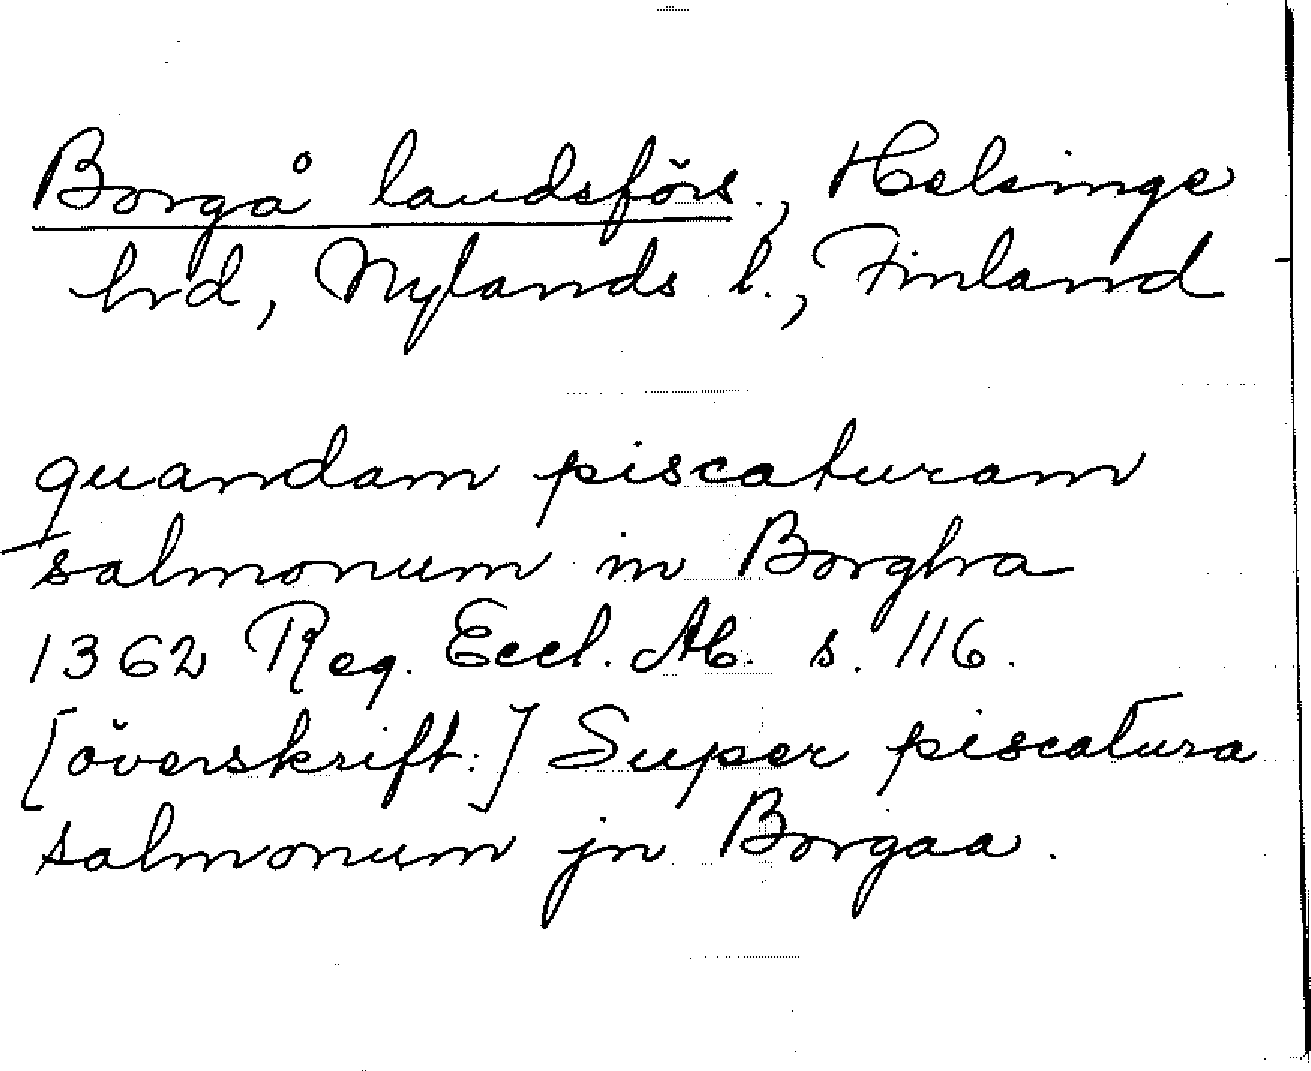 Borgå landsförs., Helsinge
hrd, Nylands l., Finland
quandam piscaturam
salmonum in Borgha
1362 Reg. Eccl. Ab. s. 116.
[överskrift:] Super piscatura
salmonum jn Borgaa.